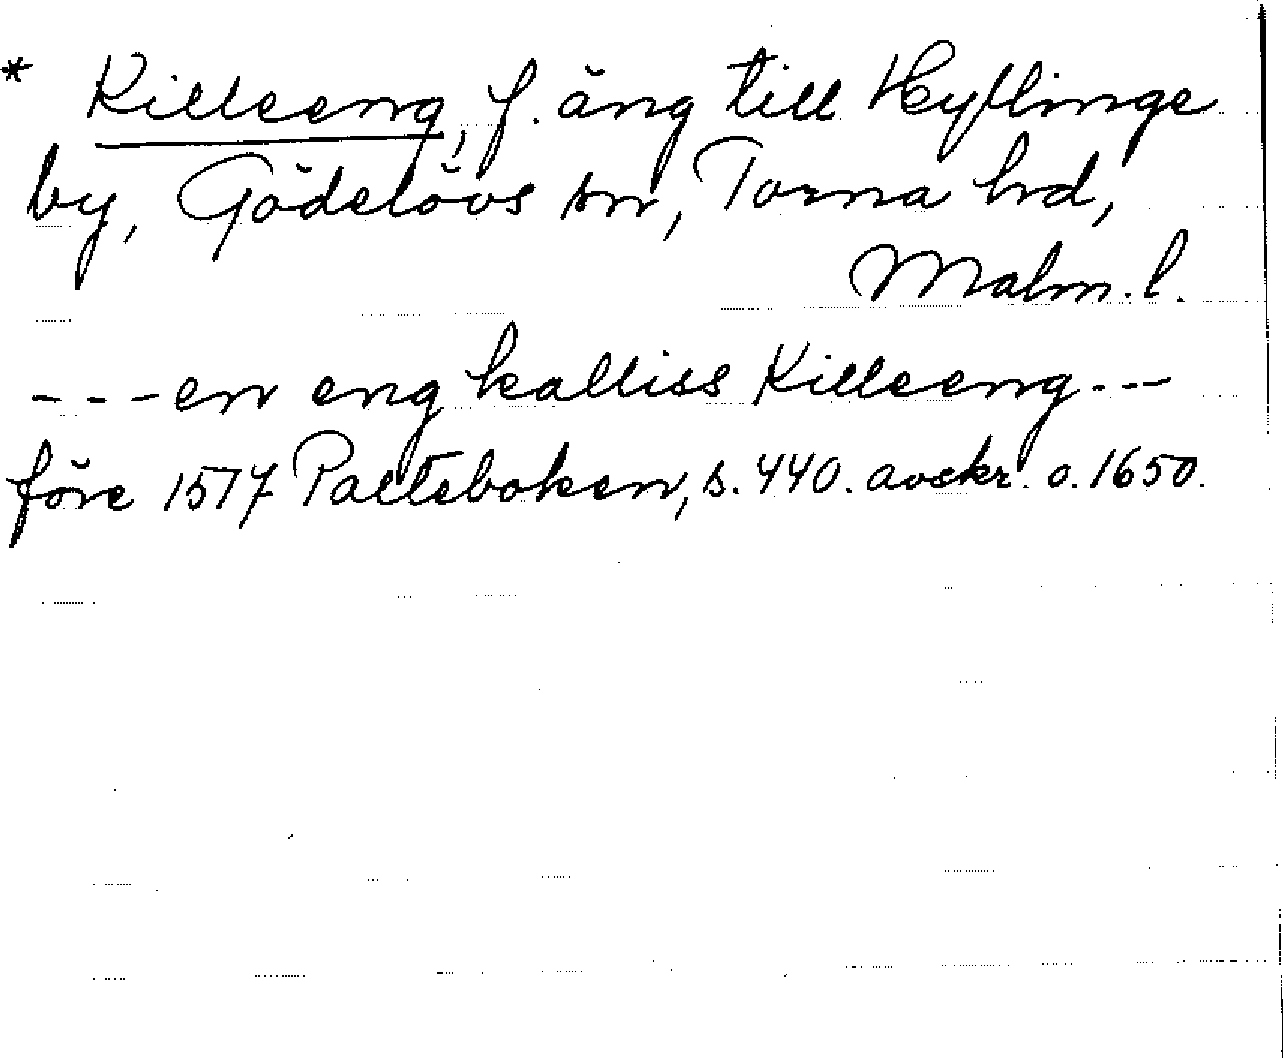 * Killeeng, f. äng till Heyflinge
by, Gödelövs sn, Torna hrd,
Malm. l.
--- en eng kalliss Killeeng ---
före 1517 Palteboken, s. 440. avskr. o. 1650.